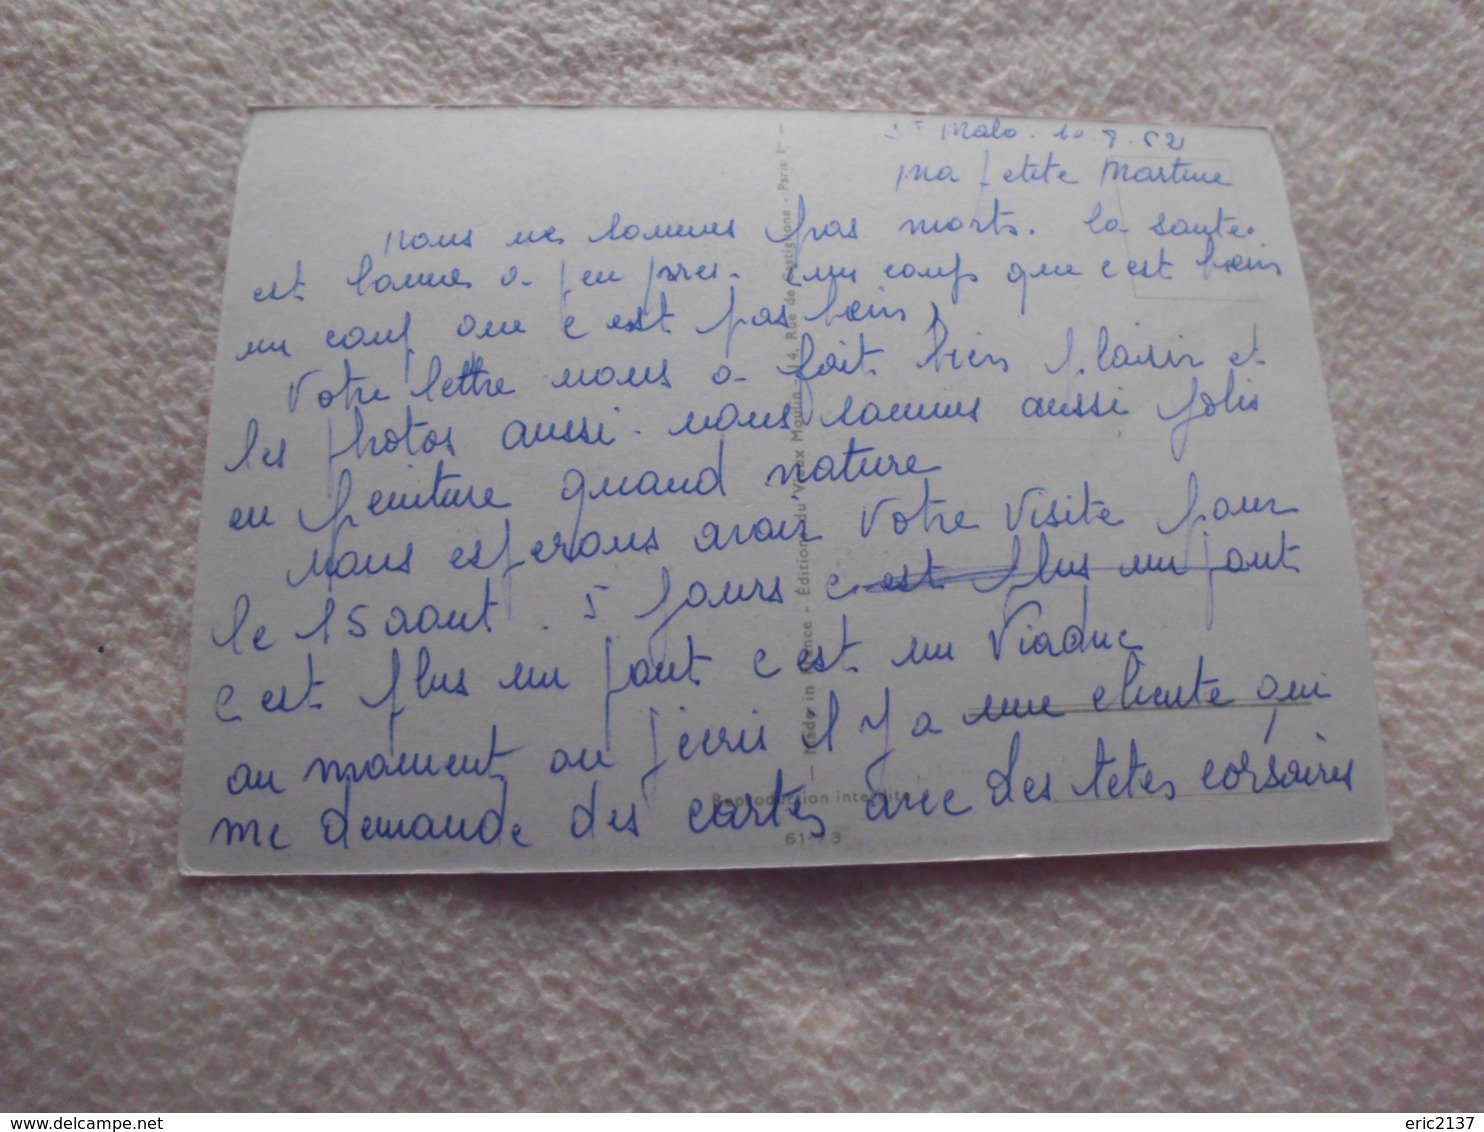 St Malo. 10.8.62
ma petite Martine
nous ne sommes pas morts. la santé
est bonne a peu pres. un coup que c est bien
un coup que c est pas bien,
Votre lettre nous a fait bien plaisir et
les photos aussi. nous sommes aussi jolis
en peinture quand nature
nous esperons avoir votre visite pour
le 15 aout. 5 jours c est plus un pont
c est plus un pont c est un Viaduc
au moment ou j ecris il y a une cliente qui
me demande des cartes avec des tetes corsaires
— Made in France - Éditions du Vieux Moulin - 14, Rue de Castiglione - Paris 1er —
Reproduction interdite
delcampe.net
eric2137